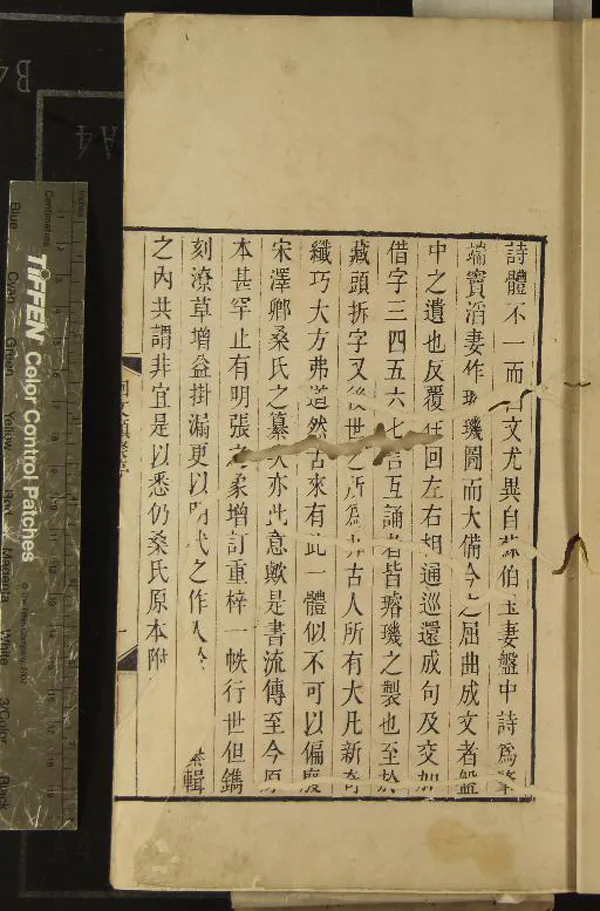 詩體不一而文尤異自蘇伯玉妻盤中詩為肇
端竇滔妻作璇璣圖而大備今之屈曲成文者盤
中之遺也反覆往回左右相通巡還成句及交加
借字三四五六七言互誦者皆璿璣之製也至於
藏頭拆字又後世之所為非古人所有大凡新奇
纖巧大方弗道然古來有此一體似不可以偏廢
宋澤卿桑氏之纂次亦此意歟是書流傳至今原
本甚罕止有明張之象增訂重梓一帙行世但鐫
刻潦草增益掛漏更以明代之作入於 纂輯
之內共謂非宜是以悉仍桑氏原本附
TIFFEN Color Control Patches
Centimetres
Inches
Blue
Cyan
Green
Yellow
Red
Magenta
White
3/Color
Black
B4
A4